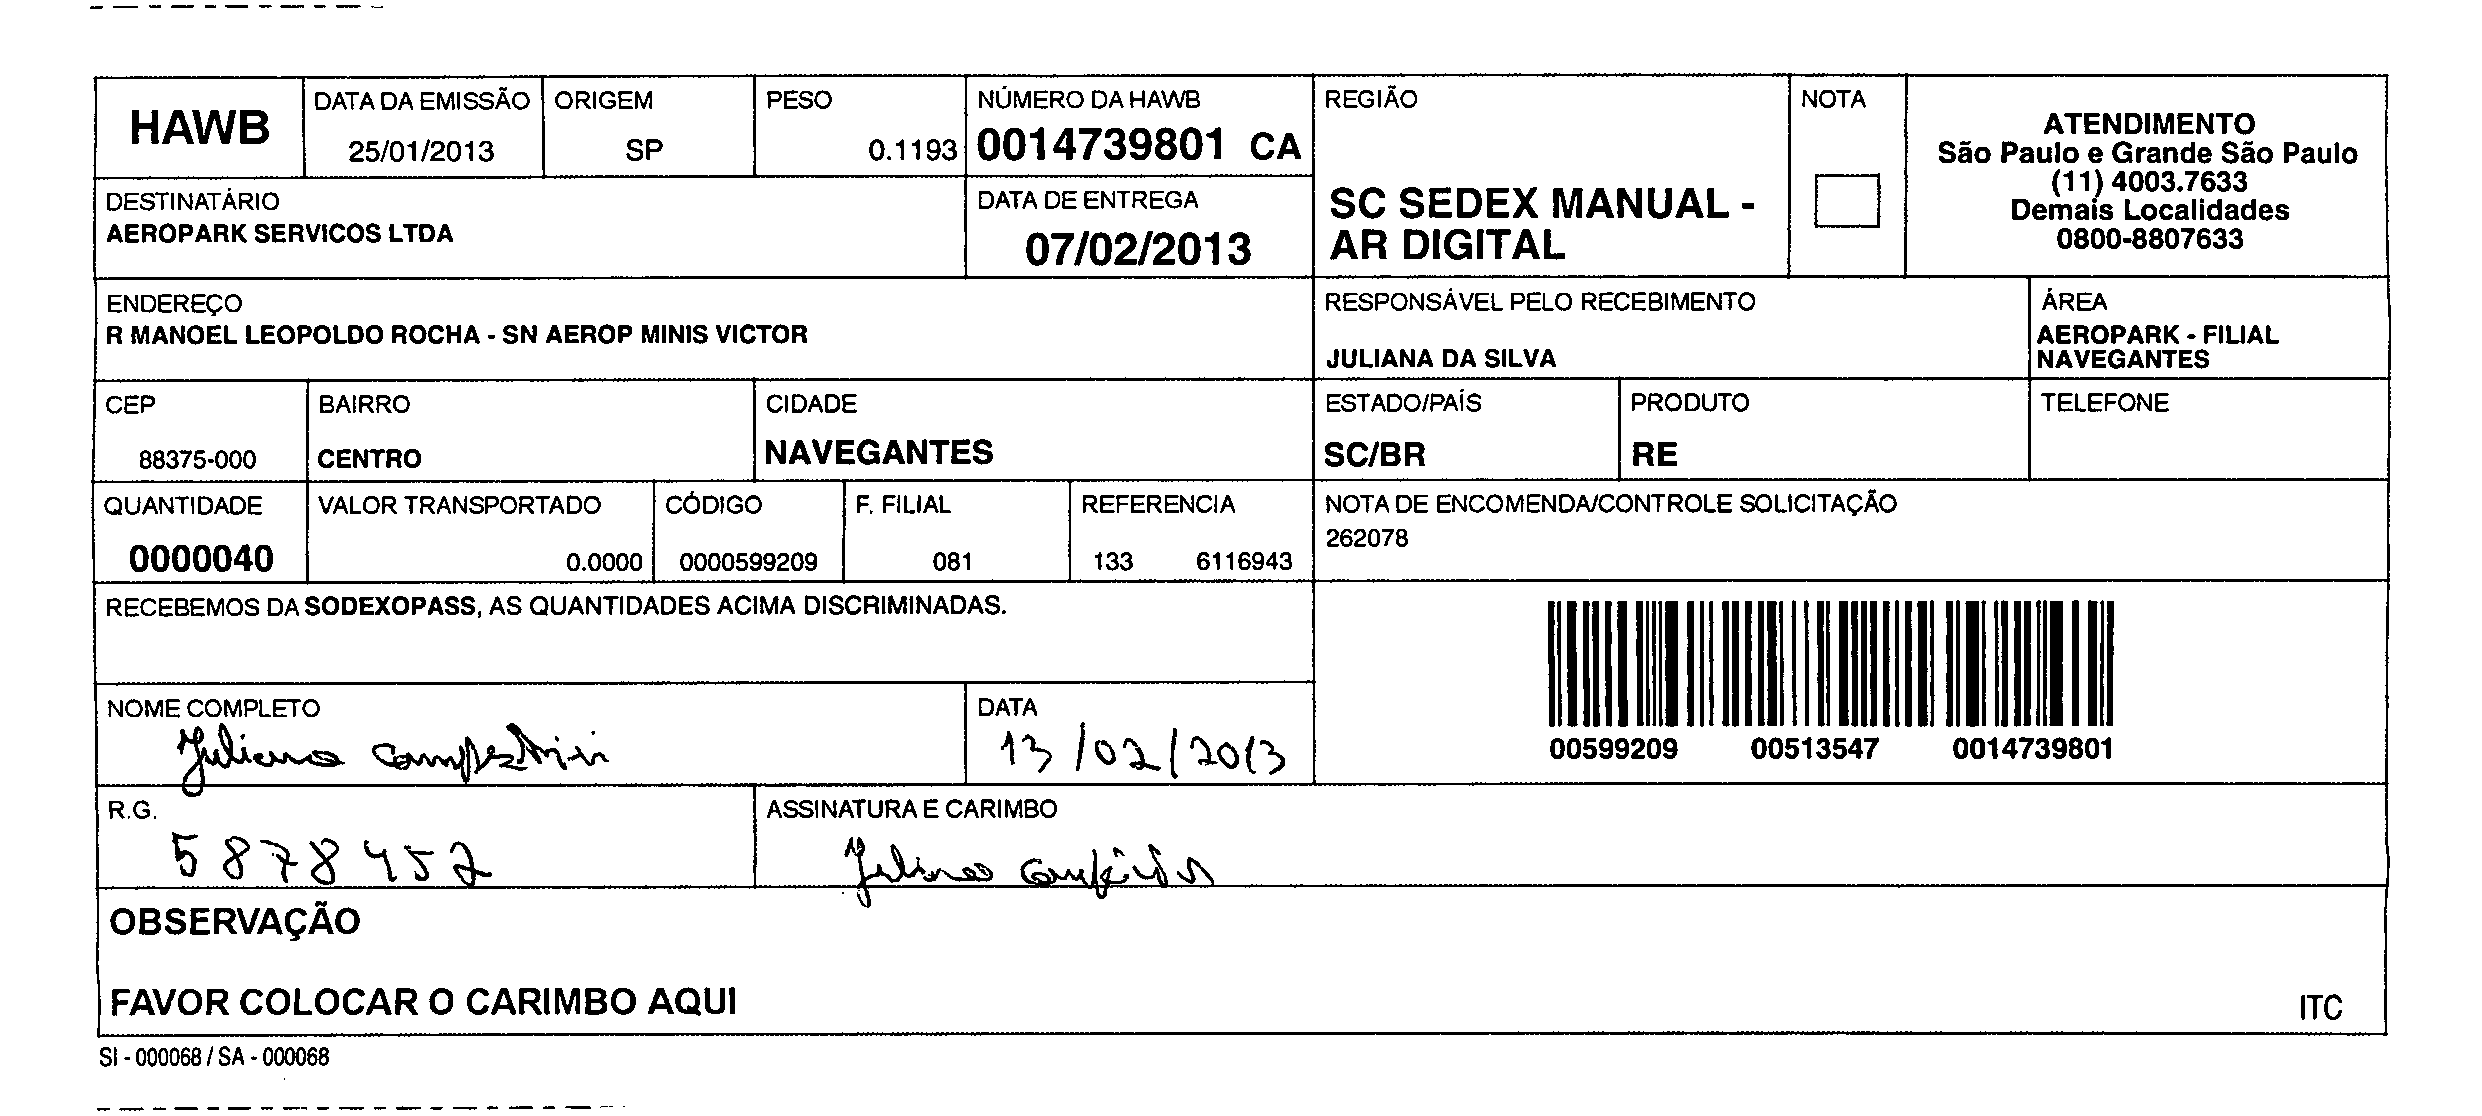 HAWB
DATA DA EMISSÃO
25/01/2013
ORIGEM
SP
PESO
0.1193
NÚMERO DA HAWB
0014739801 CA
REGIÃO
SC SEDEX MANUAL -
AR DIGITAL
NOTA
ATENDIMENTO
São Paulo e Grande São Paulo
(11) 4003.7633
Demais Localidades
0800-8807633
DESTINATÁRIO
AEROPARK SERVICOS LTDA
DATA DE ENTREGA
07/02/2013
ENDEREÇO
R MANOEL LEOPOLDO ROCHA - SN AEROP MINIS VICTOR
RESPONSÁVEL PELO RECEBIMENTO
JULIANA DA SILVA
ÁREA
AEROPARK - FILIAL
NAVEGANTES
CEP
88375-000
BAIRRO
CENTRO
CIDADE
NAVEGANTES
ESTADO/PAÍS
SC/BR
PRODUTO
RE
TELEFONE
QUANTIDADE
0000040
VALOR TRANSPORTADO
0.0000
CÓDIGO
0000599209
F. FILIAL
081
REFERENCIA
133 6116943
NOTA DE ENCOMENDA/CONTROLE SOLICITAÇÃO
262078
RECEBEMOS DA SODEXOPASS, AS QUANTIDADES ACIMA DISCRIMINADAS.
00599209 00513547 0014739801
NOME COMPLETO
Juliana
DATA
13/02/2013
R.G.
5878452
ASSINATURA E CARIMBO
Juliana
OBSERVAÇÃO
FAVOR COLOCAR O CARIMBO AQUI
ITC
SI - 000068 / SA - 000068